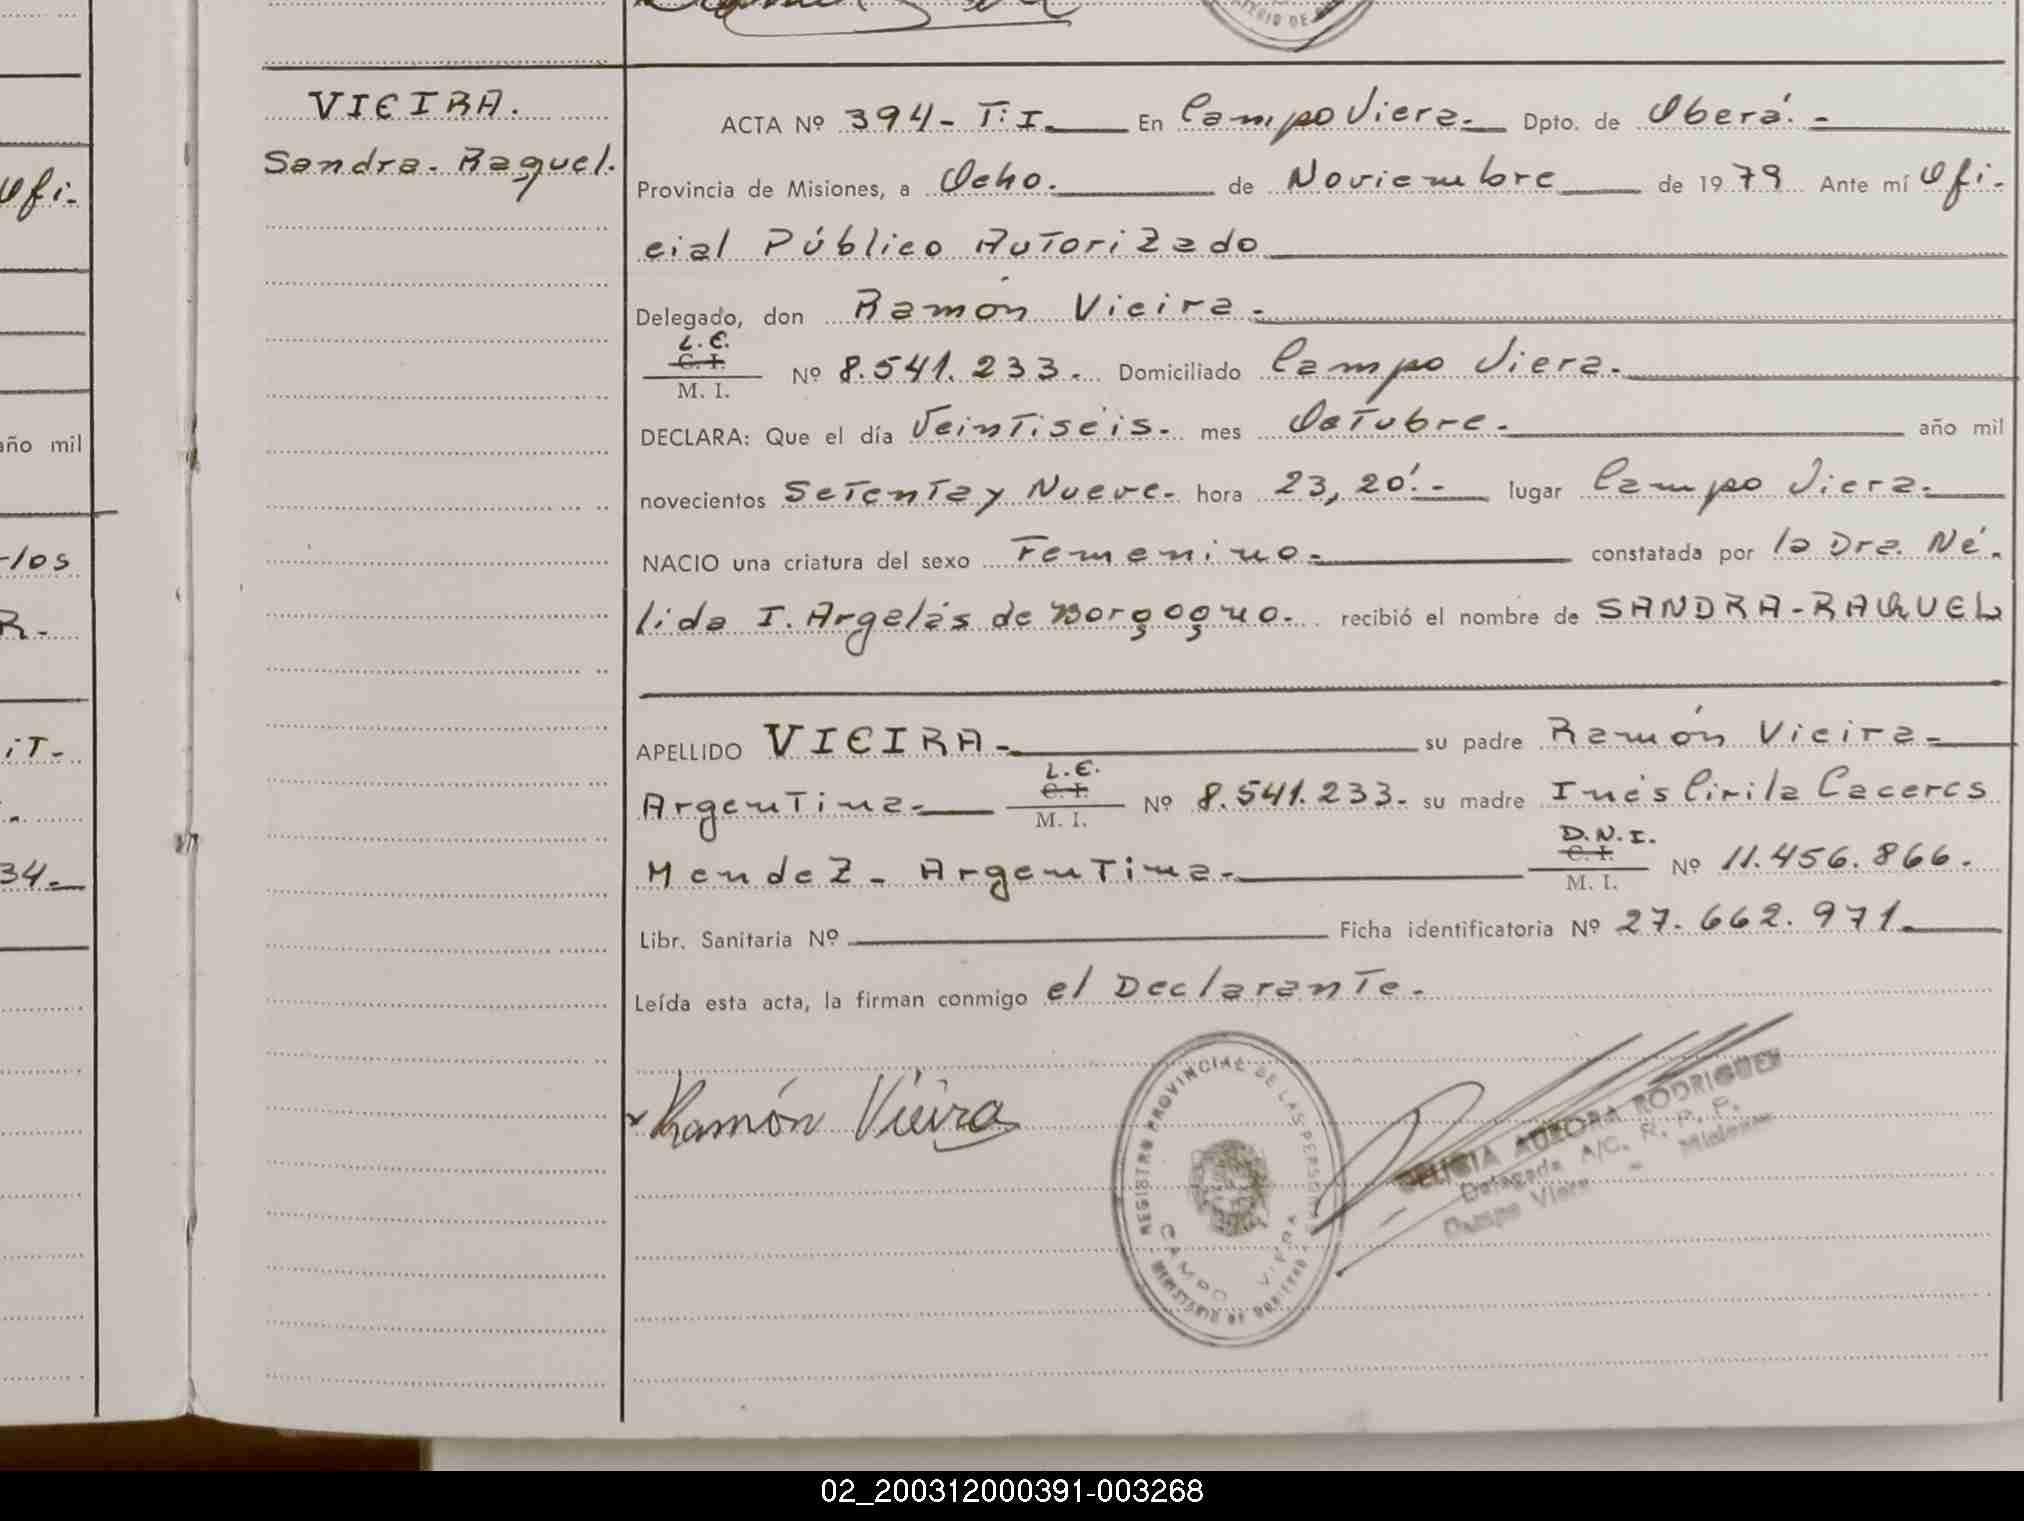 VIEIRA.
Sandra. Raquel.
ACTA Nº 394- T: I. En Campo Viera. Dpto. de Oberá. -
Provincia de Misiones, a Ocho. de Noviembre de 1979 Ante mí Ofi-
cial Público Autorizado
Delegado, don Ramón Vieira.
L.E.
C. I.
M. I.
Nº 8.541.233. Domiciliado Campo Viera.
DECLARA: Que el día Veintiséis. mes Octubre. año mil
novecientos Setenta y Nueve. hora 23,20'. - lugar Campo Viera.
NACIO una criatura del sexo Femenino. constatada por la Dra. Né-
lida I. Argelás de Borgogno. recibió el nombre de SANDRA-RAQUEL
APELLIDO VIEIRA. su padre Ramón Vieira
Argentina.
L.E.
C. I.
M. I.
Nº 8.541.233. su madre Inés Cirila Caceres
Mendez - Argentina.
D.N.I.
C. I.
M. I.
Nº 11.456.866.
Libr. Sanitaria Nº Ficha identificatoria Nº 27.662.971.
Leída esta acta, la firman conmigo el Declarante.
Ramón Vieira
REGISTRO PROVINCIAL DE LAS PERSONAS
CAMPO VIERA
MINISTERIO DE GOBIERNO
DELICIA AURORA RODRIGUEZ
Delegada A/C. R. P. P.
Campo Viera - Misiones
Ofi-
año mil
-los
R-
it-
34.
02_200312000391-003268